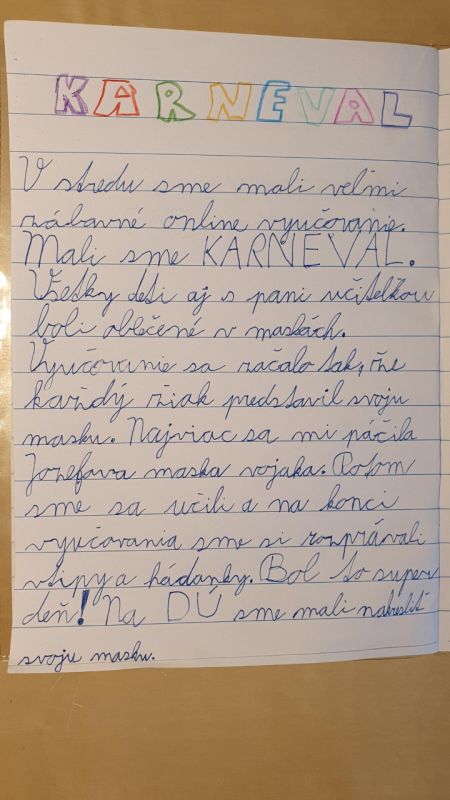 KARNEVAL
V stredu sme mali veľmi
zábavné online vyučovanie.
Mali sme KARNEVAL.
Všetky deti aj s pani učiteľkou
boli oblečené v maskách.
Vyučovanie sa začalo tak, že
každý žiak predstavil svoju
masku. Najviac sa mi páčila
Jozefova maska vojaka. Potom
sme sa učili a na konci
vyučovania sme si rozprávali
vtipy a hádanky. Bol to super
deň! Na DÚ sme mali nakresliť
svoju masku.